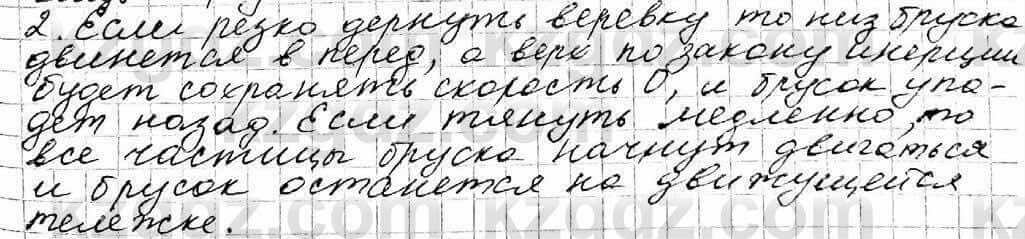 2. Если резко дернуть веревку то низ бруска
двинется в перед, а верх по закону инерции
будет сохранять скорость 0, и брусок упа-
дет назад. Если тянуть медленно, то
все частицы бруска начнут двигаться
и брусок останется на движущейся
тележке.